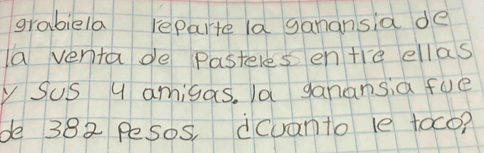 grabiela reparte la ganansia de
la venta de Pasteles entre ellas
y sus 4 amigas. la ganansia fue
de 382 pesos, ¿cuanto le toco?